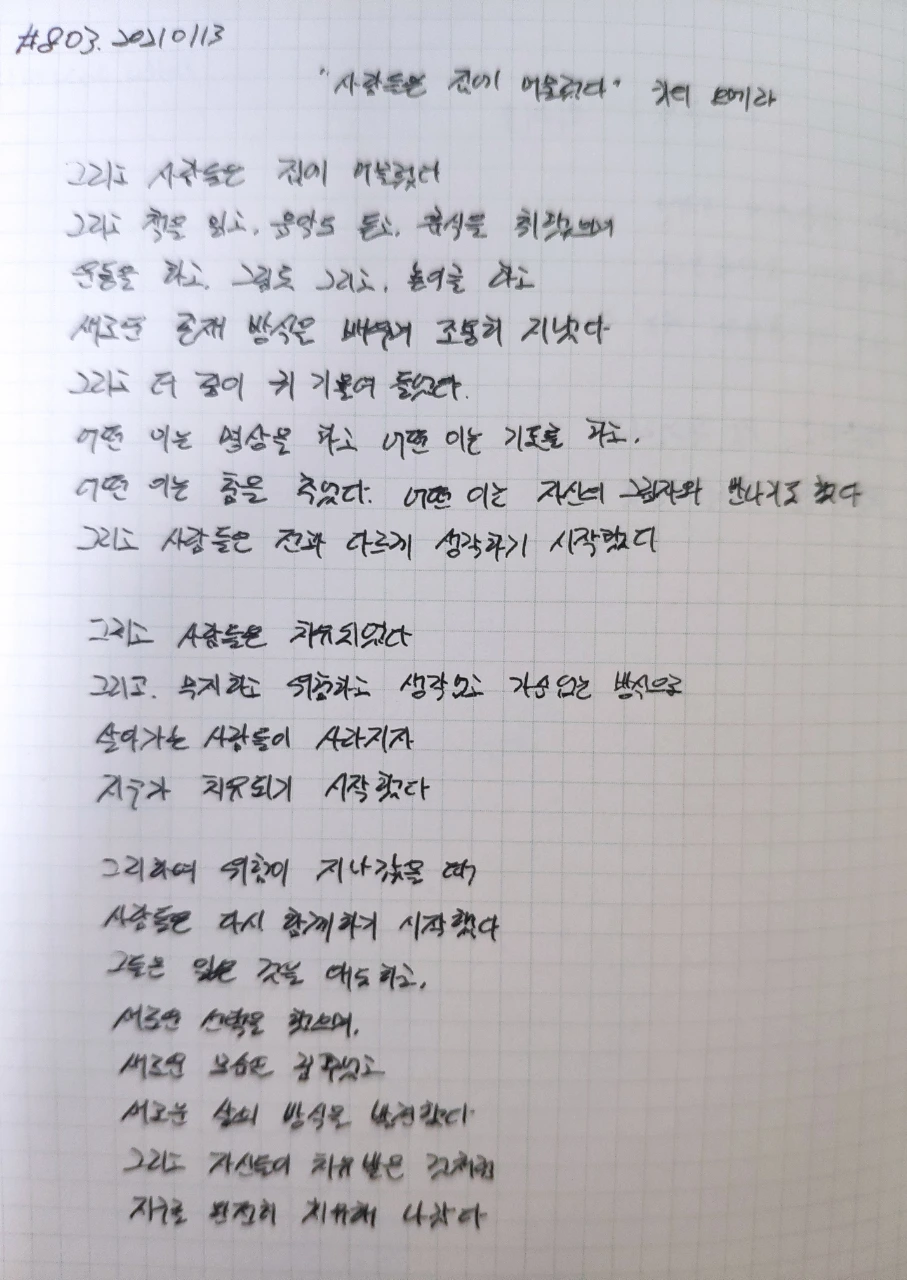 #803. 20210113
"사람들은 집에 머물렀다" 키티 오메라
그리고 사람들은 집에 머물렀다
그리고 책을 읽고, 음악도 듣고, 휴식을 취했으며
운동을 하고, 그림도 그리고, 놀이를 하고
새로운 존재 방식을 배우며 조용히 지냈다
그리고 더 깊이 귀 기울여 들었다.
어떤 이는 명상을 하고 어떤 이는 기도를 하고,
어떤 이는 춤을 추었다. 어떤 이는 자신의 그림자와 만나기도 했다
그리고 사람들은 전과 다르게 생각하기 시작했다
그리고 사람들은 치유되었다
그리고. 무지하고 위험하고 생각없고 가슴없는 방식으로
살아가는 사람들이 사라지자
지구가 치유되기 시작했다
그리하여 위험이 지나갔을 때
사람들은 다시 함께하기 시작했다
그들은 잃은 것을 애도하고,
새로운 선택을 했으며,
새로운 모습을 꿈꾸었고
새로운 삶의 방식을 발견했다
그리고 자신들이 치유받은 것처럼
지구를 완전히 치유해 나갔다